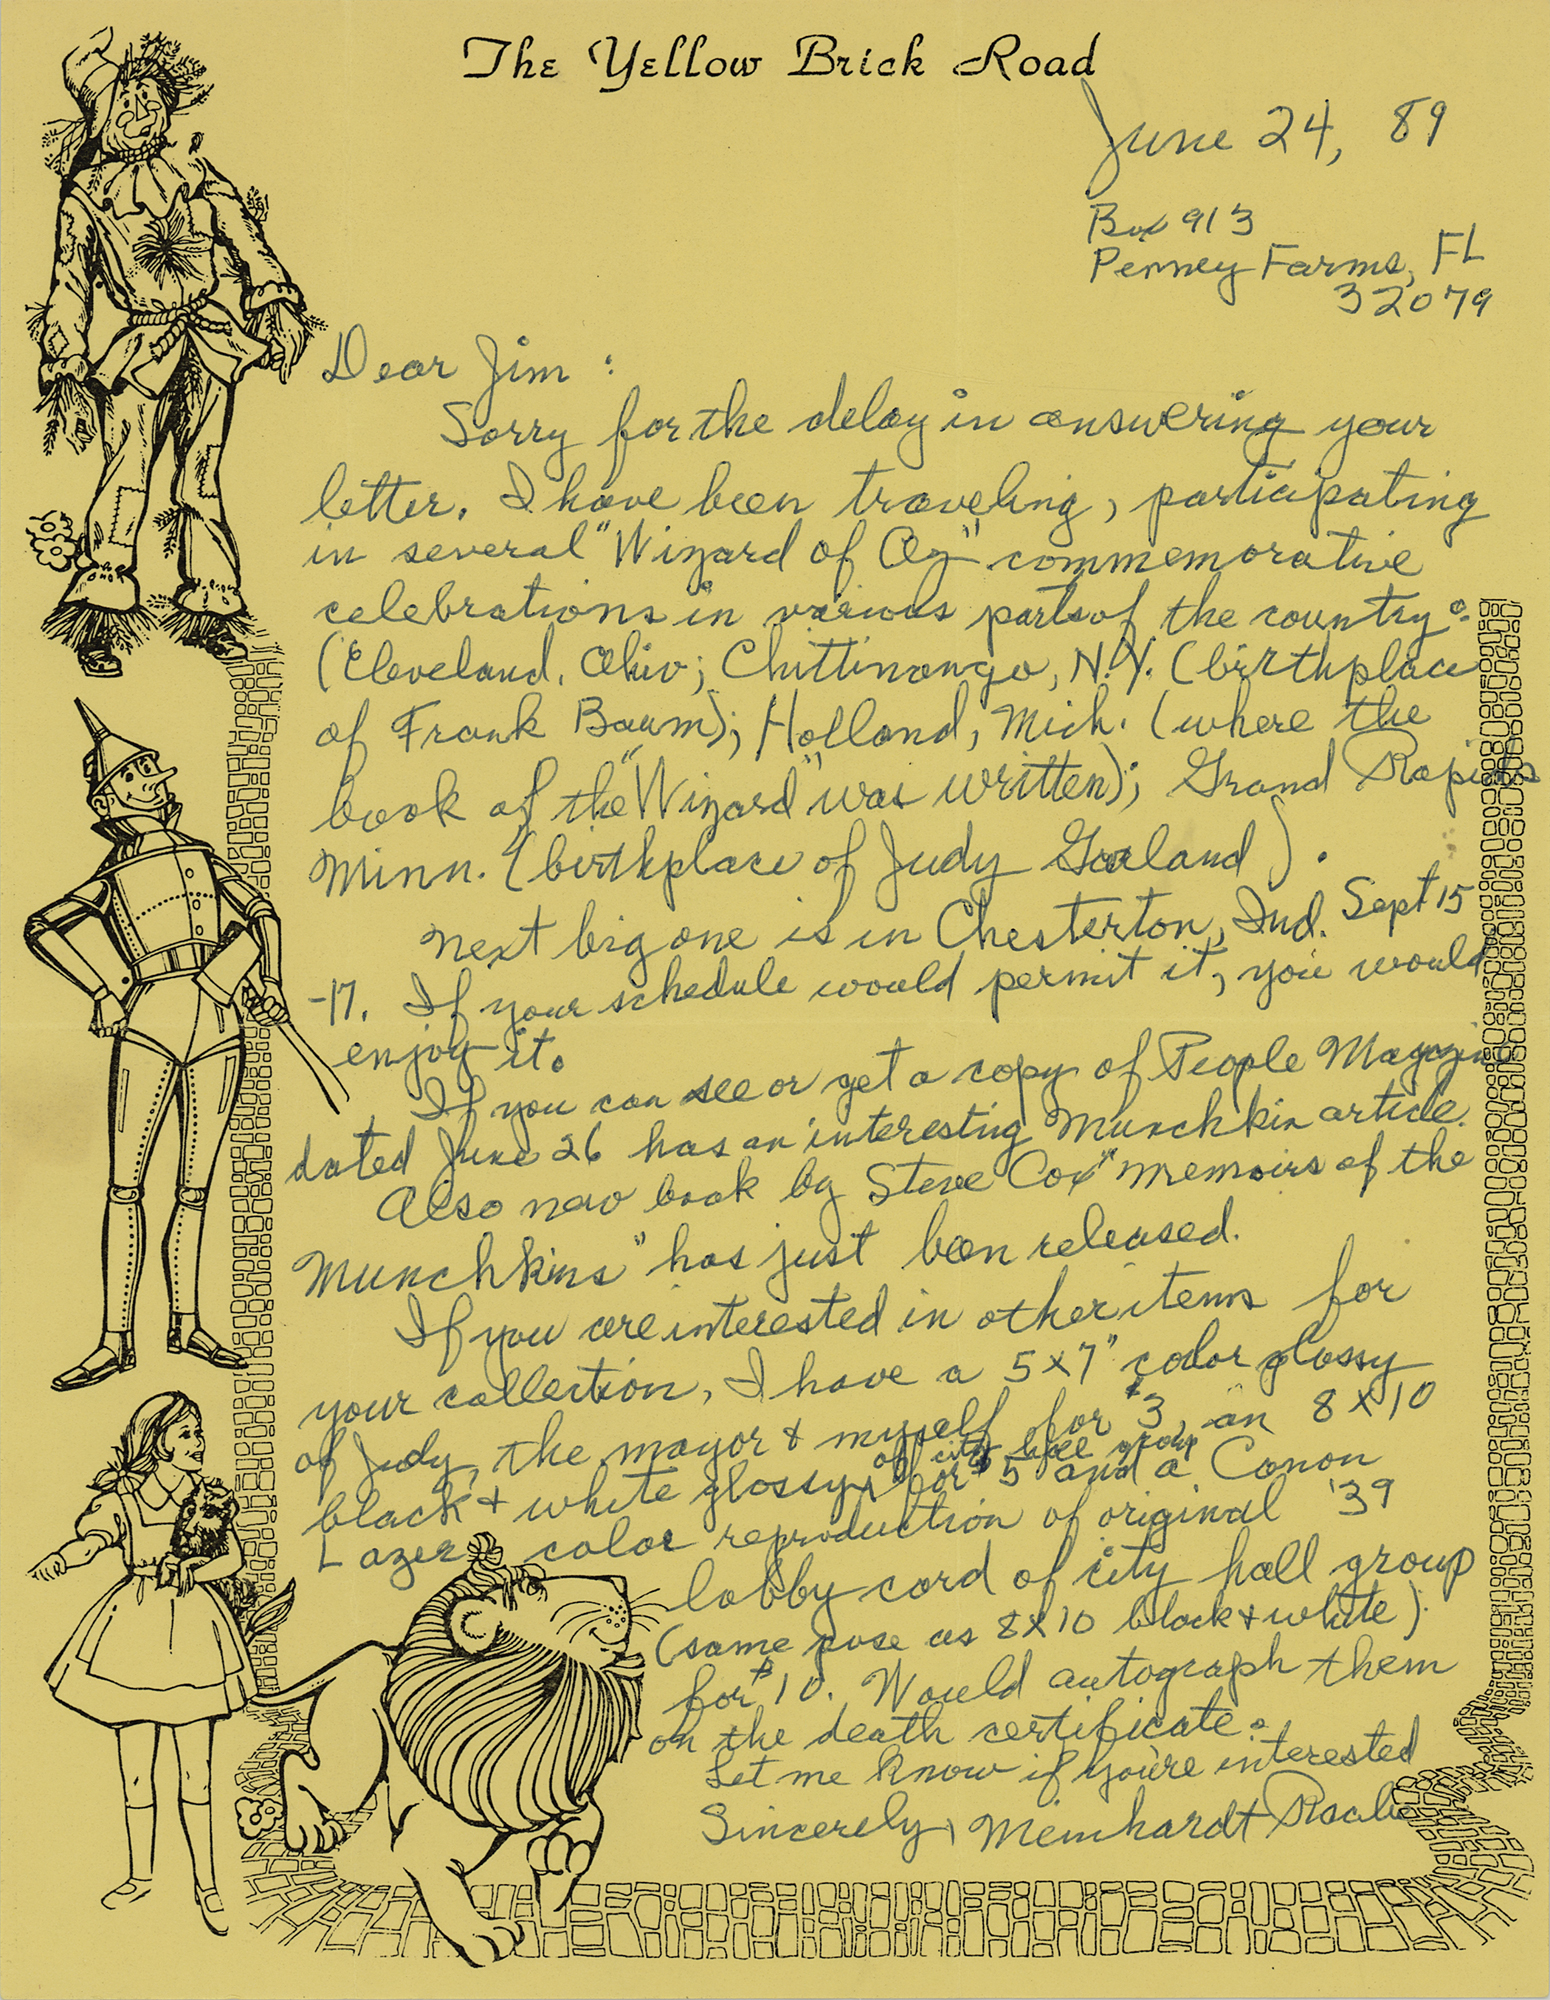 The Yellow Brick Road
June 24, 89
Box 913
Penney Farms, FL
32079
Dear Jim :
Sorry for the delay in answering your
letter. I have been traveling, participating
in several "Wizard of Oz" commemorative
celebrations in various parts of the country:
(Cleveland, Ohio; Chittinango, N.Y. (birthplace
of Frank Baum); Holland, Mich. (where the
book of the "Wizard" was written); Grand Rapids
Minn. (birthplace of Judy Garland).
Next big one is in Chesterton, Ind. Sept 15
-17. If your schedule would permit it, you would
enjoy it.
If you can see or get a copy of People Magazine
dated June 26 has an interesting Munchkin article.
Also new book by Steve Cox "Memoirs of the
Munchkins" has just been released.
If you are interested in other items for
your collection, I have a 5x7" color glossy
of Judy, the mayor & myself for $3, an 8x10
black & white glossy of city hall group for $5 and a Canon
Lazer color reproduction of original '39
lobby card of city hall group
(same pose as 8x10 black & white)
for $10. Would autograph them
on the death certificate.
Let me know if you're interested
Sincerely, Meinhardt Raabe